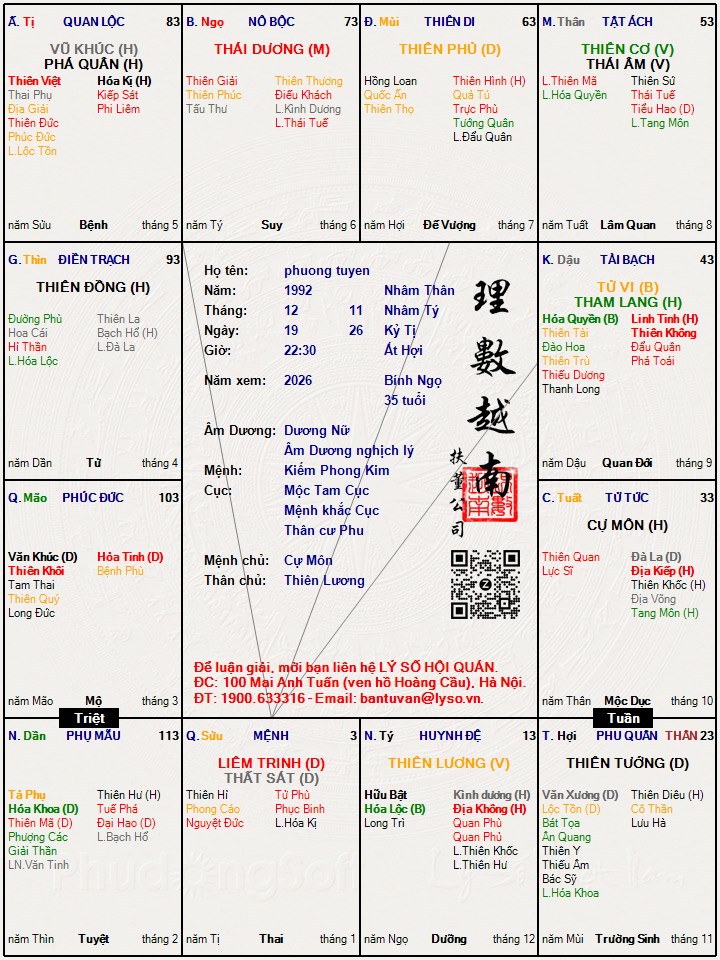 Ấ. Tị QUAN LỘC 83
VŨ KHÚC (H)
PHÁ QUÂN (H)
Thiên Việt Hóa Kị (H)
Thai Phụ Kiếp Sát
Địa Giải Phi Liêm
Thiên Đức
Phúc Đức
L.Lộc Tồn
năm Sửu Bệnh tháng 5
B. Ngọ NÔ BỘC 73
THÁI DƯƠNG (M)
Thiên Giải Thiên Thương
Thiên Phúc Điếu Khách
Tấu Thư L.Kình Dương
L.Thái Tuế
năm Tý Suy tháng 6
Đ. Mùi THIÊN DI 63
THIÊN PHỦ (D)
Hồng Loan Thiên Hình (H)
Quốc Ấn Quả Tú
Thiên Thọ Trực Phù
Tướng Quân
L.Đẩu Quân
năm Hợi Đế Vượng tháng 7
M. Thân TẬT ÁCH 53
THIÊN CƠ (V)
THÁI ÂM (V)
L.Thiên Mã Thiên Sứ
L.Hóa Quyền Thái Tuế
Tiểu Hao (D)
L.Tang Môn
năm Tuất Lâm Quan tháng 8
G. Thìn ĐIỀN TRẠCH 93
THIÊN ĐỒNG (H)
Đường Phù Thiên La
Hoa Cái Bạch Hổ (H)
Hỉ Thần L.Đà La
L.Hóa Lộc
năm Dần Tử tháng 4
Họ tên: phuong tuyen
Năm: 1992 Nhâm Thân
Tháng: 12 11 Nhâm Tý
Ngày: 19 26 Kỷ Tị
Giờ: 22:30 Ất Hợi
Năm xem: 2026 Bính Ngọ
35 tuổi
Âm Dương: Dương Nữ
Âm Dương nghịch lý
Mệnh: Kiếm Phong Kim
Cục: Mộc Tam Cục
Mệnh khắc Cục
Thân cư Phu
Mệnh chủ: Cự Môn
Thân chủ: Thiên Lương
理
數
越
南
扶
董
公
司
Để luận giải, mời bạn liên hệ LÝ SỐ HỘI QUÁN.
ĐC: 100 Mai Anh Tuấn (ven hồ Hoàng Cầu), Hà Nội.
ĐT: 1900.633316 - Email: bantuvan@lyso.vn.
K. Dậu TÀI BẠCH 43
TỬ VI (B)
THAM LANG (H)
Hóa Quyền (B) Linh Tinh (H)
Thiên Tài Thiên Không
Đào Hoa Đẩu Quân
Thiên Trù Phá Toái
Thiếu Dương
Thanh Long
năm Dậu Quan Đới tháng 9
Q. Mão PHÚC ĐỨC 103
Văn Khúc (D) Hỏa Tinh (D)
Thiên Khôi Bệnh Phù
Tam Thai
Thiên Quý
Long Đức
năm Mão Mộ tháng 3
C. Tuất TỬ TỨC 33
CỰ MÔN (H)
Thiên Quan Đà La (D)
Lực Sĩ Địa Kiếp (H)
Thiên Khốc (H)
Địa Võng
Tang Môn (H)
năm Thân Mộc Dục tháng 10
Triệt
Tuần
N. Dần PHỤ MẪU 113
Tả Phụ Thiên Hư (H)
Hóa Khoa (D) Tuế Phá
Thiên Mã (D) Đại Hao (D)
Phượng Các L.Bạch Hổ
Giải Thần
LN.Văn Tinh
năm Thìn Tuyệt tháng 2
Q. Sửu MỆNH 3
LIÊM TRINH (D)
THẤT SÁT (D)
Thiên Hỉ Tử Phù
Phong Cáo Phục Binh
Nguyệt Đức L.Hóa Kị
năm Tị Thai tháng 1
N. Tý HUYNH ĐỆ 13
THIÊN LƯƠNG (V)
Hữu Bật Kình dương (H)
Hóa Lộc (B) Địa Không (H)
Long Trì Quan Phù
Quan Phủ
L.Thiên Khốc
L.Thiên Hư
năm Ngọ Dưỡng tháng 12
T. Hợi PHU QUÂN THÂN 23
THIÊN TƯỚNG (D)
Văn Xương (D) Thiên Diêu (H)
Lộc Tồn (D) Cô Thần
Bát Tọa Lưu Hà
Ân Quang
Thiên Y
Thiếu Âm
Bác Sỹ
L.Hóa Khoa
năm Mùi Trường Sinh tháng 11